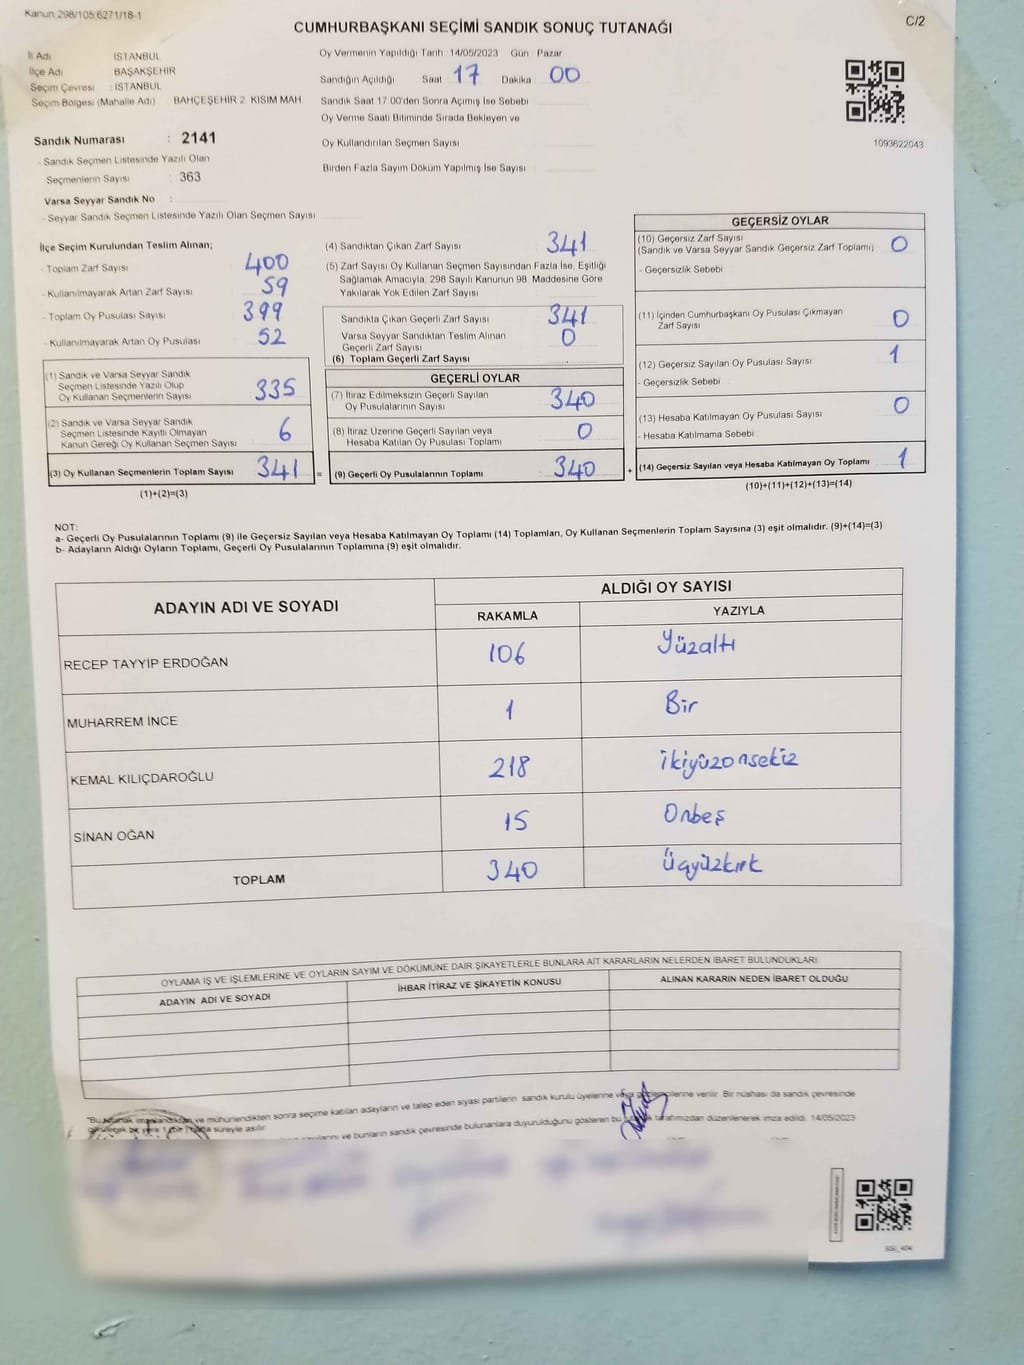 Kanun 298/105;6271/18-1
CUMHURBAŞKANI SEÇİMİ SANDIK SONUÇ TUTANAĞI
C/2
İl Adı İSTANBUL
İlçe Adı BAŞAKŞEHİR
Seçim Çevresi : İSTANBUL
Seçim Bölgesi (Mahalle Adı) BAHÇEŞEHİR 2. KISIM MAH
Sandık Numarası : 2141
- Sandık Seçmen Listesinde Yazılı Olan
Seçmenlerin Sayısı : 363
Varsa Seyyar Sandık No :
- Seyyar Sandık Seçmen Listesinde Yazılı Olan Seçmen Sayısı
Oy Vermenin Yapıldığı Tarih 14/05/2023 Gün Pazar
Sandığın Açıldığı Saat 17 Dakika 00
Sandık Saat 17.00'den Sonra Açımış İse Sebebi
Oy Verme Saati Bitiminde Sırada Bekleyen ve
Oy Kullandırılan Seçmen Sayısı
Birden Fazla Sayım Döküm Yapılmış İse Sayısı
1093622043
İlçe Seçim Kurulundan Teslim Alınan;
- Toplam Zarf Sayısı 400
- Kullanılmayarak Artan Zarf Sayısı 59
- Toplam Oy Pusulası Sayısı 399
- Kullanılmayarak Artan Oy Pusulası 52
(1) Sandık ve Varsa Seyyar Sandık
Seçmen Listesinde Yazılı Olup
Oy Kullanan Seçmenlerin Sayısı 335
(2) Sandık ve Varsa Seyyar Sandık
Seçmen Listesinde Kayıtlı Olmayan
Kanun Gereği Oy Kullanan Seçmen Sayısı 6
(3) Oy Kullanan Seçmenlerin Toplam Sayısı 341 =
(1)+(2)=(3)
(4) Sandıktan Çıkan Zarf Sayısı 341
(5) Zarf Sayısı Oy Kullanan Seçmen Sayısından Fazla İse, Eşitliği
Sağlamak Amacıyla, 298 Sayılı Kanunun 98. Maddesine Göre
Yakılarak Yok Edilen Zarf Sayısı
Sandıkta Çıkan Geçerli Zarf Sayısı 341
Varsa Seyyar Sandıktan Teslim Alınan
Geçerli Zarf Sayısı 0
(6) Toplam Geçerli Zarf Sayısı
GEÇERLİ OYLAR
(7) İtiraz Edilmeksizin Geçerli Sayılan
Oy Pusulalarının Sayısı 340
(8) İtiraz Üzerine Geçerli Sayılan veya
Hesaba Katılan Oy Pusulası Toplamı 0
(9) Geçerli Oy Pusulalarının Toplamı 340 +
GEÇERSİZ OYLAR
(10) Geçersiz Zarf Sayısı
(Sandık ve Varsa Seyyar Sandık Geçersiz Zarf Toplamı) 0
- Geçersizlik Sebebi
(11) İçinden Cumhurbaşkanı Oy Pusulası Çıkmayan
Zarf Sayısı 0
(12) Geçersiz Sayılan Oy Pusulası Sayısı 1
- Geçersizlik Sebebi
(13) Hesaba Katılmayan Oy Pusulası Sayısı 0
- Hesaba Katılmama Sebebi
(14) Geçersiz Sayılan veya Hesaba Katılmayan Oy Toplamı 1
(10)+(11)+(12)+(13)=(14)
NOT:
a- Geçerli Oy Pusulalarının Toplamı (9) ile Geçersiz Sayılan veya Hesaba Katılmayan Oy Toplamı (14) Toplamları, Oy Kullanan Seçmenlerin Toplam Sayısına (3) eşit olmalıdır. (9)+(14)=(3)
b- Adayların Aldığı Oyların Toplamı, Geçerli Oy Pusulalarının Toplamına (9) eşit olmalıdır.
ADAYIN ADI VE SOYADI
ALDIĞI OY SAYISI
RAKAMLA YAZIYLA
RECEP TAYYİP ERDOĞAN 106 Yüzaltı
MUHARREM İNCE 1 Bir
KEMAL KILIÇDAROĞLU 218 ikiyüzonsekiz
SİNAN OĞAN 15 Onbeş
TOPLAM 340 Üçyüzkırk
OYLAMA İŞ VE İŞLEMLERİNE VE OYLARIN SAYIM VE DÖKÜMÜNE DAİR ŞİKAYETLERLE BUNLARA AİT KARARLARIN NELERDEN İBARET BULUNDUKLARI
ADAYIN ADI VE SOYADI İHBAR İTİRAZ VE ŞİKAYETİN KONUSU ALINAN KARARIN NEDEN İBARET OLDUĞU
mühürlendikten sonra seçime katılan adayların ve talep eden siyasi partilerin sandık kurulu üyelerine veya verilir. Bir nüshası da sandık çevresinde
süreyle asılır.
ve bunların sandık çevresinde bulunanlara duyurulduğunu gösteren bu tarafımızdan düzenlenerek imza edildi. 14/05/2023